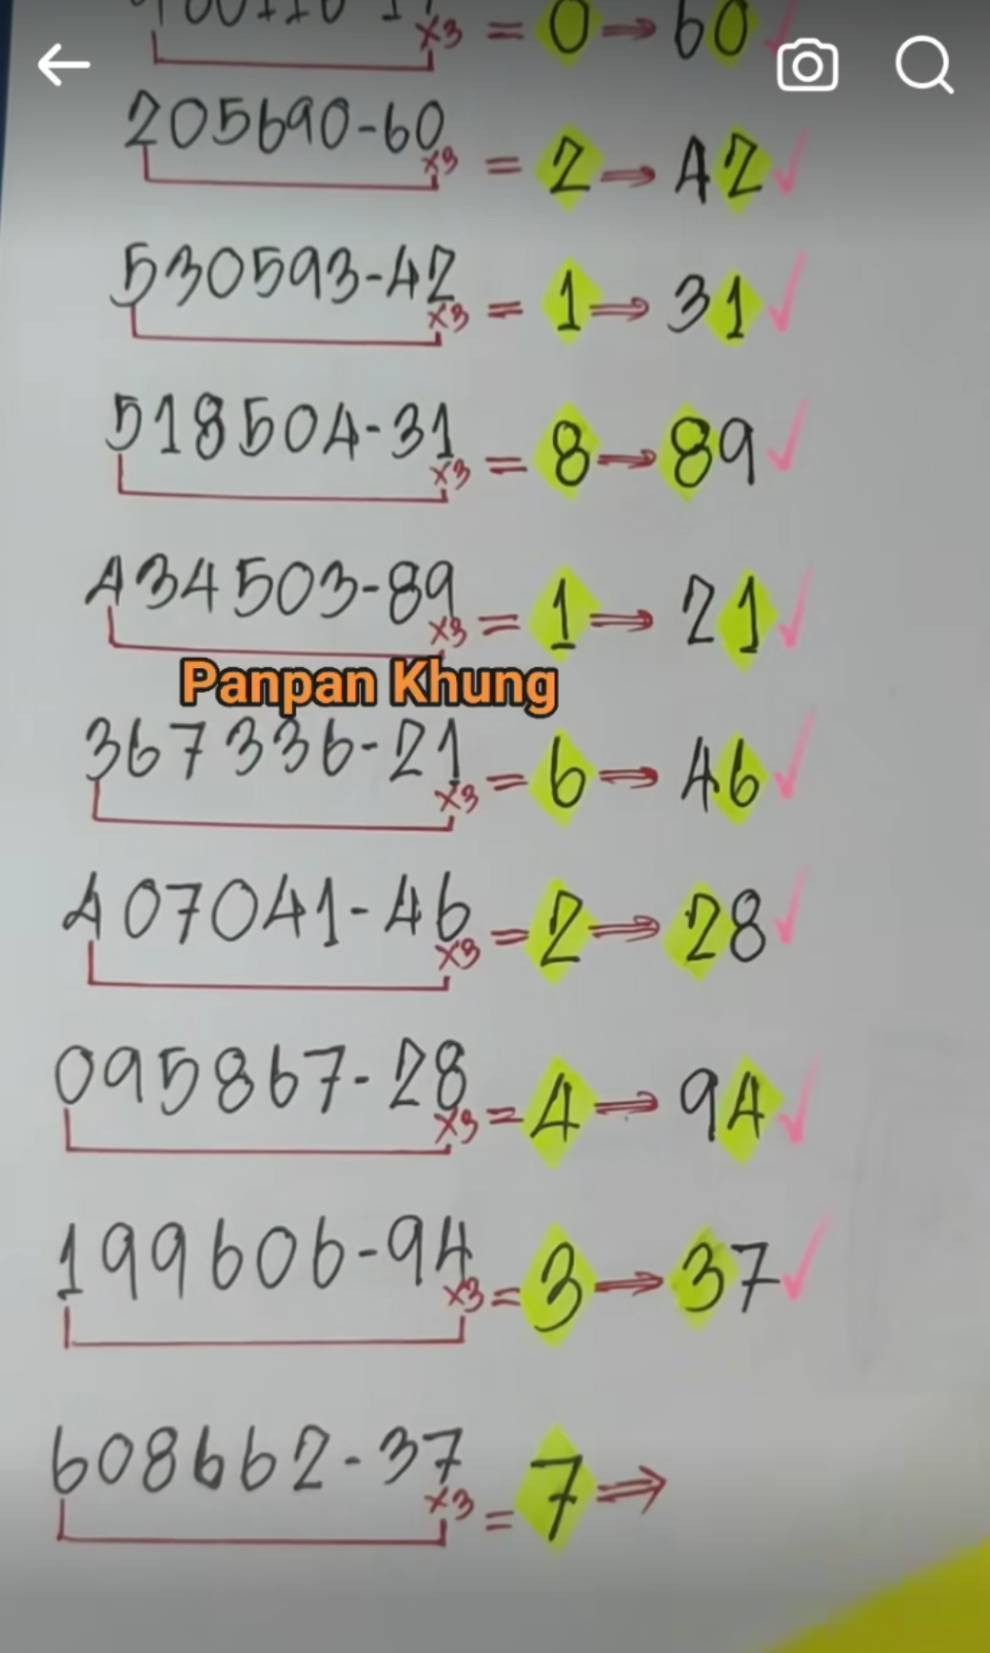 ×3 = 0 → 60
205690-60 ×3 = 2 → 42
530593-42 ×3 = 1 → 31
518504-31 ×3 = 8 → 89
434503-89 ×3 = 1 → 21
Panpan Khung
367336-21 ×3 = 6 → 46
407041-46 ×3 = 2 → 28
095867-28 ×3 = 4 → 94
199606-94 ×3 = 3 → 37
608662-37 ×3 = 7 →